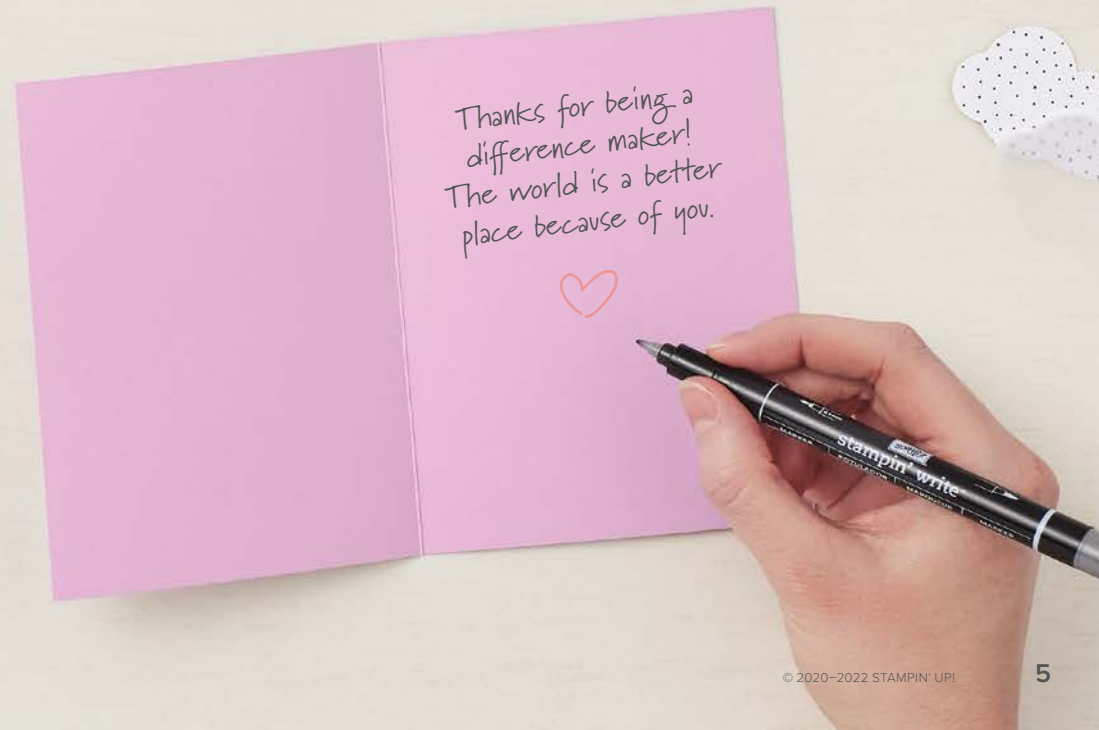 Thanks for being a
difference maker!
The world is a better
place because of you.
stampin' write
MARKER
MARKER
© 2020–2022 STAMPIN' UP!
5